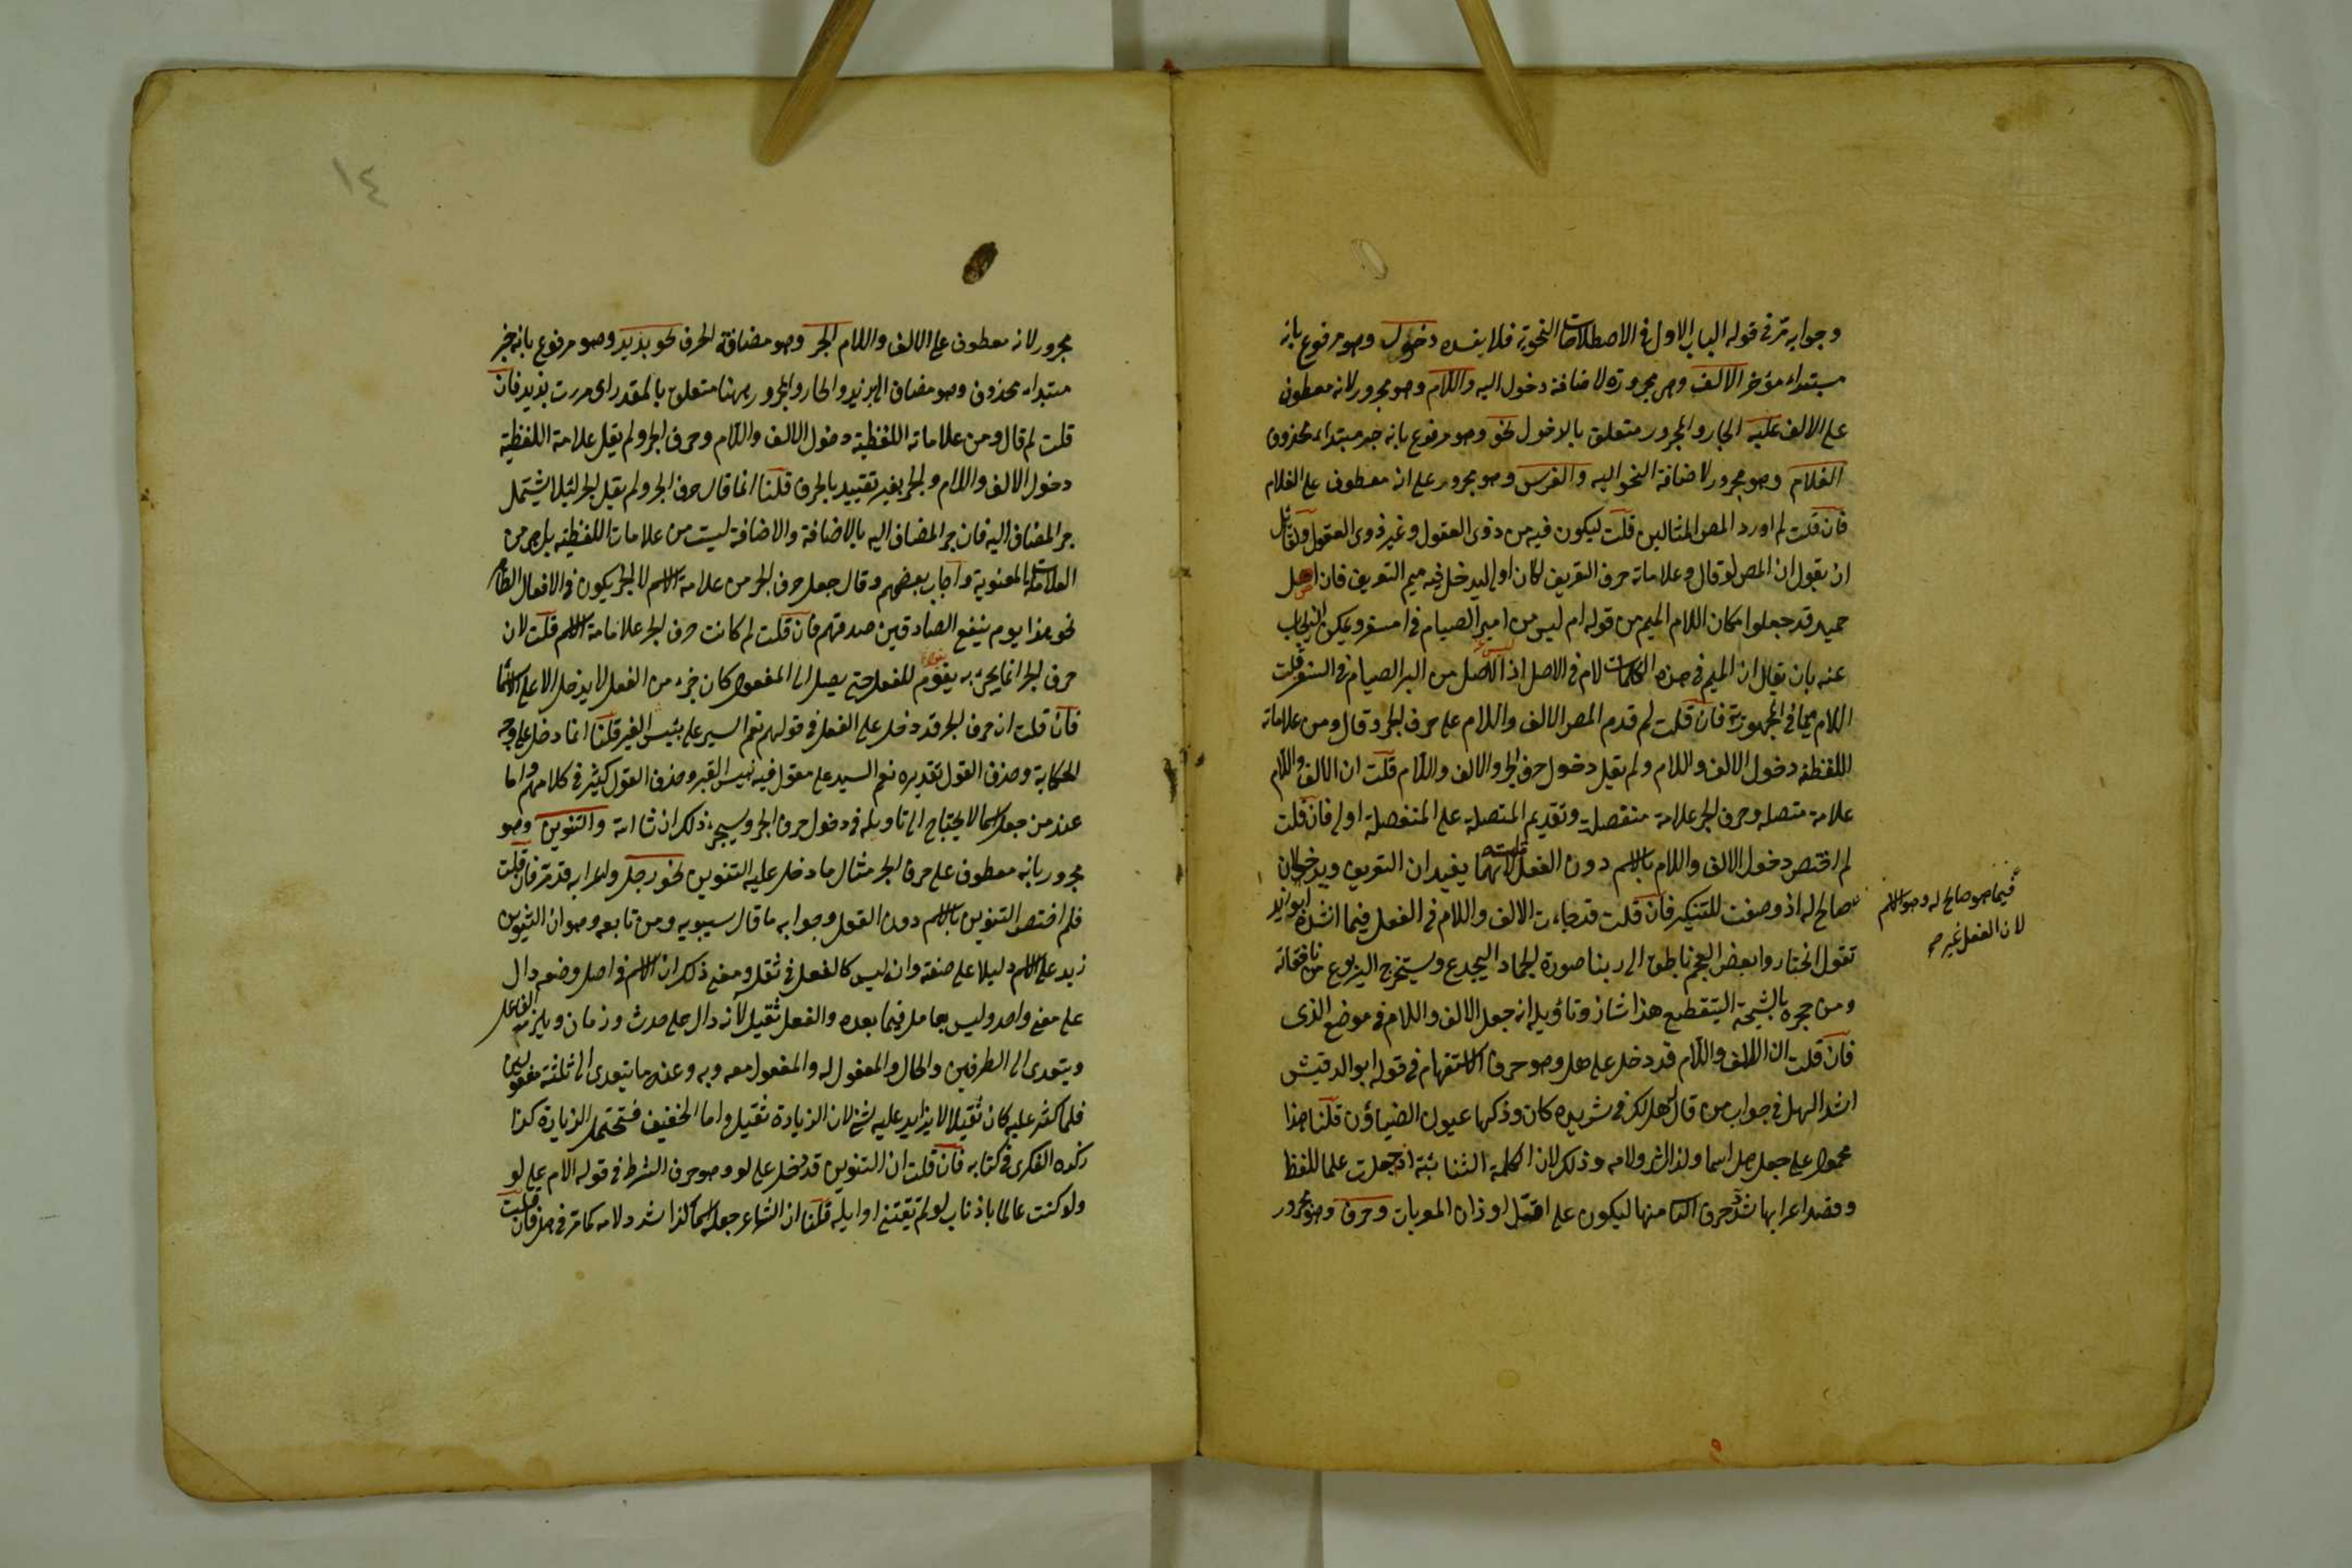 وجوابه مر في قوله الباب الاول في الاصطلاحات النحوية فلا يفسده دخول وهو مرفوع بانه
مبتداء مؤخر الالف وهى مجرورة لاضافة دخول اليه واللام وهو مجرور لانه معطوف
على الالف عليه الجار والمجرور متعلق بالدخول نحو وهو مرفوع بانه خبر مبتداء محذوف
الغلام وهو مجرور لاضافة النحو اليه والفرس وهو مجرور على انه معطوف على الغلام
فان قلت لم اورد المص المثالين قلت ليكون فيه من ذوى العقول وغير ذوى العقول ولقائل
ان يقول ان المص لو قال وعلاماته حرف التعريف لكان اولى ليدخل فيه ميم التعريف فان اهل
حمير قد جعلوا مكان اللام الميم من قوله ام ليس من امبر امصيام في امسفر ويمكن الجواب
عنه بان يقال ان الميم في هذه الكلمات لام في الاصل اذ الاصل ليس من البر الصيام في السفر قلبت
اللام ميما فان قلت لم قدم المص الالف واللام على حرف الجر وقال ومن علاماته
اللفظية دخول الالف واللام ولم يقل دخول حرف الجر والالف واللام قلت ان الالف واللام
علامة متصلة وحرف الجر علامة منفصلة وتقديم المتصلة على المنفصلة اولى فان قلت
لم اختص دخول الالف واللام بالاسم دون الفعل قلت لانهما يفيدان التعريف ويدخلان
فيما هو صالح له وهو الاسم
لان الفعل غير صح
صالح له اذ وضعت للتنكير فان قلت قد جاءت الالف واللام في الفعل فيما انشده ابو زيد
تقول الخنا وابغض العجم ناطقا الى ربنا صورة الحمار اليجدع ويستخرج اليربوع من نافقائه
ومن جحره بالشيحة اليتقصع هذا شاذ وتاؤيله انه جعل الالف واللام في موضع الذى
فان قلت ان الالف واللام قد دخل على هل وهو حرف الاستفهام في قوله ابو الدقيش
اشد الهل في جواب من قال هل لك في ثريدة كان ودكها عيون الضياؤن قلنا هذا
محمول على جعل هل اسما ولذا شدد لامه وذلك لان الكلمة الثنائية اذ جعلت علما للفظ
وقصد اعرابها شدد حرف الثا منها ليكون على اقل اوزان المعربات وحرف وهو مجرور
١٤
مجرور لانه معطوف على الالف واللام الجر وهو مضافة الحرف نحو بزيد وهو مرفوع بانه خبر
مبتداء محذوف وهو مضاف الى بزيد والجار والمجرور ههنا متعلق بالمقدر اى مررت بزيد فان
قلت لم قال ومن علاماته اللفظية دخول الالف واللام وحرف الجر ولم يقل علامة اللفظية
دخول الالف واللام والجر بغير تقييد بالحرف قلنا انما قال حرف الجر ولم يقل الجر لئلا يشتمل
جر المضاف اليه فان جر المضاف اليه بالاضافة والاضافة ليست من علامات اللفظية بل هى من
العلامات المعنوية واجاب بعضهم وقال جعل حرف الجر من علامة الاسم لا الجر يكون في الافعال الظاهر
نحو هذا يوم ينفع الصادقين صدقهم فان قلت لم كانت حرف الجر علامة الاسم قلت لان
حرف الجر انما يجئ به يقوم للفعل حتى يصل الى المفعول كان جزء من الفعل لا يدخل الا على الاسماء
فان قلت ان حرف الجر قد دخل على الفعل في قولهم نعم السير على بئيس العير قلنا انما دخل على وجه
الحكاية وحذف القول تقديره نعم السير على مقول فيه بئيس العير وحذف القول كثير في كلامهم واما
عند من جعل اسما لا يحتاج الى تاويله في دخول حرف الجر وسيجئ ذلك ان شاء الله والتنوين وهو
مجرور بانه معطوف على حرف الجر مثال ما دخل عليه التنوين نحو رجل واعرابه قد مر فان قلت
فلم اختص التنوين بالاسم دون الفعل وجوابه ما قال سيبويه ومن تابعه وهو ان التنوين
زيد على الاسم دليلا على خفته وانه ليس كالفعل في ثقله ومعنى ذلك ان الاسم في اصل وضعه دال
على معنى واحد وليس بعامل فيما بعده والفعل ثقيل لانه دال على حدث وزمان ويلزمه الفاعل
ويتعدى الى الظرفين والحال والمفعول له والمفعول معه وبه وعند ما يتعدى الى ثلثة مفعولين
فلما كثر عليه كان ثقيلا لا يزايد عليه شئ لان الزيادة ثقيل واما الخفيف فتحتمل الزيادة كذا
ذكره الفكرى في كتابه فان قلت ان التنوين قد دخل على لو وهو حرف الشرط في قوله الام على لو
ولو كنت عالما باذناب لو لم تفتنى اوايله قلنا ان الشاعر جعله اسما لذا شدد لامه كما مر في هل فان قلت